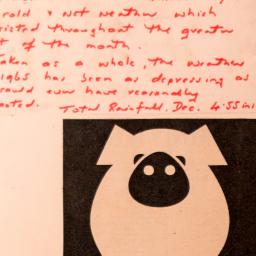 cold & wet weather which
isted throughout the greater
t of the month.
aken as a whole, the weather
has been as depressing as
could ever have reasonably
ected. Total Rainfall. Dec. 4.55 in